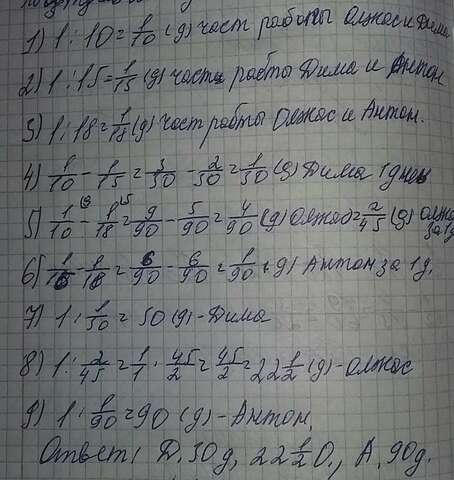 1) 1 : 10 = 1/10 (д) част работы Олжас и Дима
2) 1 : 15 = 1/15 (д) часть работы Дима и Антон
3) 1 : 18 = 1/18 (д) част работы Олжас и Антон.
4) 1/10 - 1/15 = 3/30 - 2/30 = 1/30 (д) Дима 1 день
5) 1/10 - 1/18 = 9/90 - 5/90 = 4/90 (д) Олжас = 2/45 (д) Олжас за 1д
6) 1/15 - 1/18 = 6/90 - 6/90 = 1/90 (д) Антон за 1 д.
7) 1 : 1/30 = 30 (д) - Дима
8) 1 : 2/45 = 1/1 · 45/2 = 45/2 = 22 1/2 (д) - Олжас
9) 1 : 1/90 = 90 (д) - Антон.
Ответ: Д. 30 д, 22 1/2 О., А. 90 д.